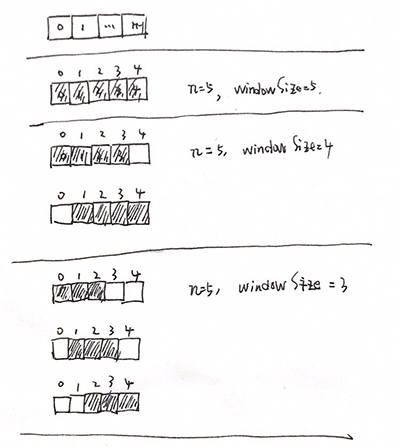 0 1 ... n-1
0 1 2 3 4
n=5, windowSize=5.
0 1 2 3 4
n=5, windowSize=4
0 1 2 3 4
0 1 2 3 4
n=5, windowSize=3
0 1 2 3 4
0 1 2 3 4